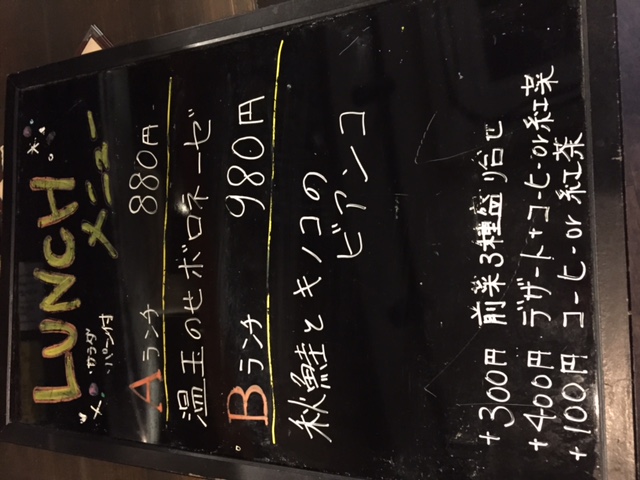 LUNCH
メニュー
・サラダ
パン付
Aランチ 880円
温玉のせボロネーゼ
Bランチ 980円
秋鮭とキノコの
ビアンコ
+300円 前菜3種盛り合せ
+400円 デザート+コーヒーor紅茶
+100円 コーヒーor紅茶